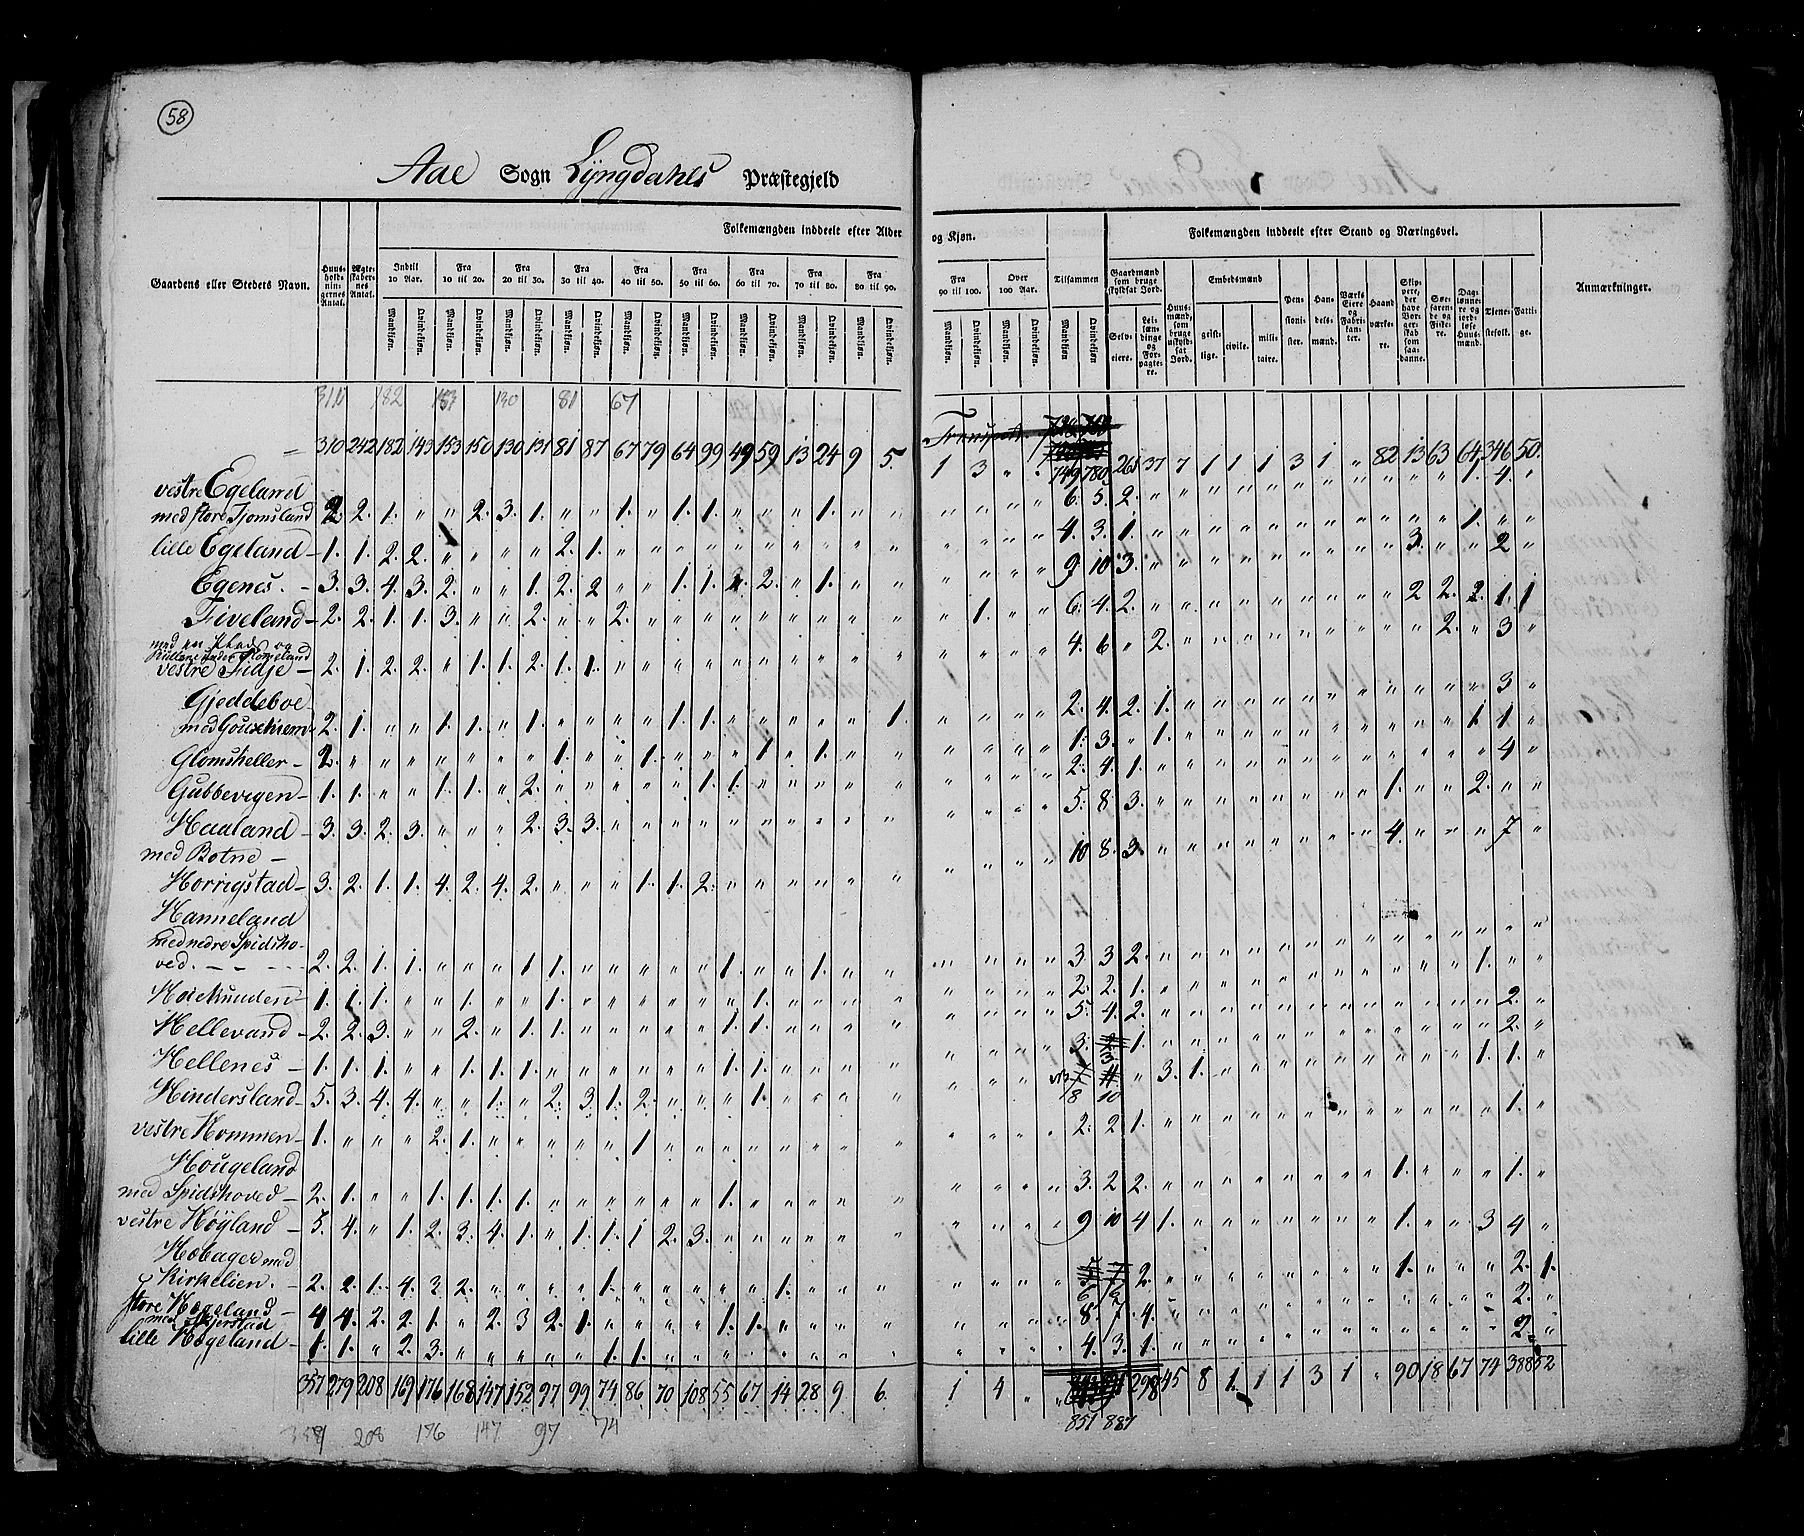 58
Aae Sogn Lyngdahls Præstegjeld
Folkemængden inddeelt efter Alder og Kjøn.
Folkemængden inddeelt efter Stand og Næringsvei.
Gaardens eller Stedets Navn.
Huus-holdnin-gernes Antal.
Ægte-skaber-nes Antal.
Indtil 10 Aar.
Fra 10 til 20.
Fra 20 til 30.
Fra 30 til 40.
Fra 40 til 50.
Fra 50 til 60.
Fra 60 til 70.
Fra 70 til 80.
Fra 80 til 90.
Fra 90 til 100.
Over 100 Aar.
Tilsammen
Mandkiøn. Qvindekiøn.
Gaardmænd som bruge skyldsat Jord.
Selv-eiere.
Lei-læn-dinge og For-pagte-re.
Huus-mænd, som bruge uskyld-sat Jord.
Embedsmænd
geist-lige. civile. mili-taire.
Pen-sioni-ster.
Han-dels-mænd.
Værks Eiere og Fabri-kan-ter.
Haand-værke-re.
Skip-pere, der have Bor-ger-skab som saa-danne.
Søe-farende og Fiske-re.
Dag-lønne-re og jord-løse Huus-mænd.
Tiene-stefolk.
Fatti-ge.
Anmærkninger.
182 153 130 81 67
310 242 182 143 153 150 130 131 81 87 67 79 64 99 49 59 13 24 9 5. Transport 1 3 " " 749 780 265 37 7 1 1 1 3 1 " 82 13 63 64 346 50.
vestre Egeland
med store Tjomsland 2. 2. 1. " " 2. 3. 1. " " 1. " 1. 1. " " " 1. " " 6. 5. 2. 1. 4. "
lille Egeland 1. 1. 2. 2. " " " " 2. 1. 4. 3. 1. 1. " "
Egenes. 3. 3. 4. 3. 2. " " 1. 2. 2 " " 1. 1. 2. " 1. 9 10 3. 3. " " 2 "
Fiveland 2. 2. 1. 1. 3. " " 2. " " 2. 1. 6. 4. 2. 2 2. 2. 1. 1
vestre Fidje 2. 1. 2. 2. " 1. 1. 2. 1. 1. 4. 6 " 2. 2. " 3 "
Gjeddeboe
med 2. 1. " " 1. 1. " 1. " " " " 1. 1. 1. 2. 4. 2. 1. 3 "
Glomsheller 2. 1. 1. 1. 1. 1: 3. " 1. 1. 1. "
Gubbevigen 1. 1. " " 1. 1. " 2. 1. 1. 2. 4. 1. 4 "
Haaland 3. 3. 2. 3. " " " 2. 3. 3. 5. 8 3. 1. " " 2. " "
med Botne
Horrigstad 3. 2. 1. 1. 4. 2. 4. 2. " " " 1. 1. 2. 10 8. 3. 4. " " " 7 "
Hanneland
med nedre Spidsho-
ved. 2. 2. 1. 1. " " " 1 1. 1. 1. 3. 3 2. 1. " "
1. 1. 1. " " 1. " " 1. 1. 2. 2. 1. 2. "
Hellevand 2. 2. 3. " " 2. " 1. 1. 1. 1. 5. 4. 2. 2. "
Hellenes 1. 1. 1. " 1. 1. 1. 1. 1. 1. 3. 3. 1. 1. 1. "
Hindersland 5. 3. 4. 4. " " 1. " 2. 3. 1. 2. 1. 18 10 " 3. 1.
vestre Hommen 1. " " " 2. 1. 1. 2. 2 1. 1. "
Hougeland
med Spidshoved 2. 1. " " 1. 1. 1. 1. 1. 3. 2 2. 1. " " " 1. "
vestre Høyland 5. 4. " 1. 2. 3. 4. 1. " 1. 1. 1. 1 2. 3. 9 10 4 1. 1. " " 3 4 "
Høbager med
Kirkelien. 2. 2. 1. 4. 3. 2. 1. 1. 6. 2. 1. 2. 1.
store Høgeland
med Skjerstad 4 4. 2. 2. 1. " 2. 3 2. 1. 1. 1. 8. 7. 4. 2. "
lille Høgeland 1. 1. " 2. 3. 1. 1. 4. 3. 1. 2. "
357 279 208 169 176 168 147 152 97 99 74 86 70 108 55 67 14 28 9. 6. 1 4 " " 298 45 8 1. 1 1 3 1 " 90 18 67 74 388 52
851 887
208 176 147 97 74